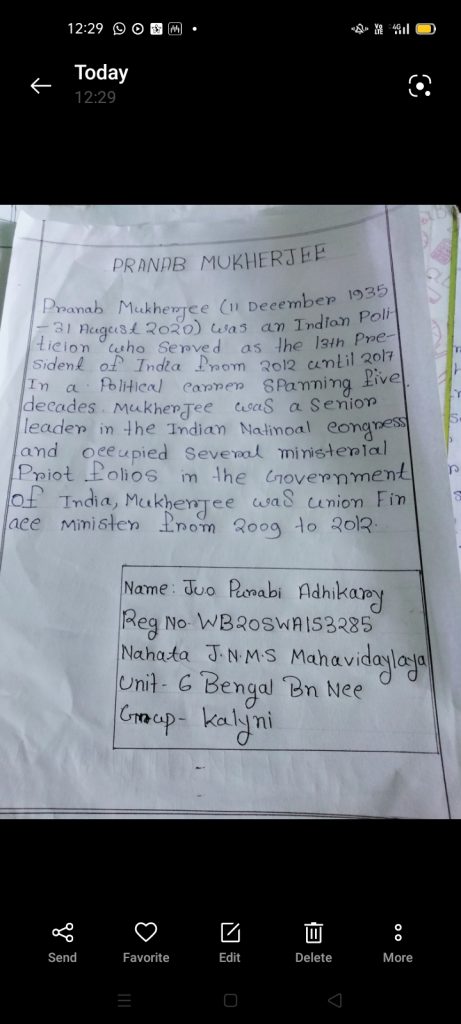 12:29
Today
12:29
PRANAB MUKHERJEE
Pranab Mukherjee (11 December 1935
- 31 August 2020) was an Indian Poli-
ticion who served as the 13th Pre-
sident of India from 2012 until 2017
In a Political carrer SPanning five
decades. Mukherjee was a senior
leader in the Indian Natinoal congress
and occupied several ministerial
Priot folios in the Government
of India, Mukherjee was union Fin
ace Minister from 2009 to 2012.
Name: Juo Purabi Adhikary
Reg No- WB20SWA153285
Nahata J.N.M.S Mahavidaylaya
Unit- 6 Bengal Bn Nee
Group- Kalyni
Send Favorite Edit Delete More